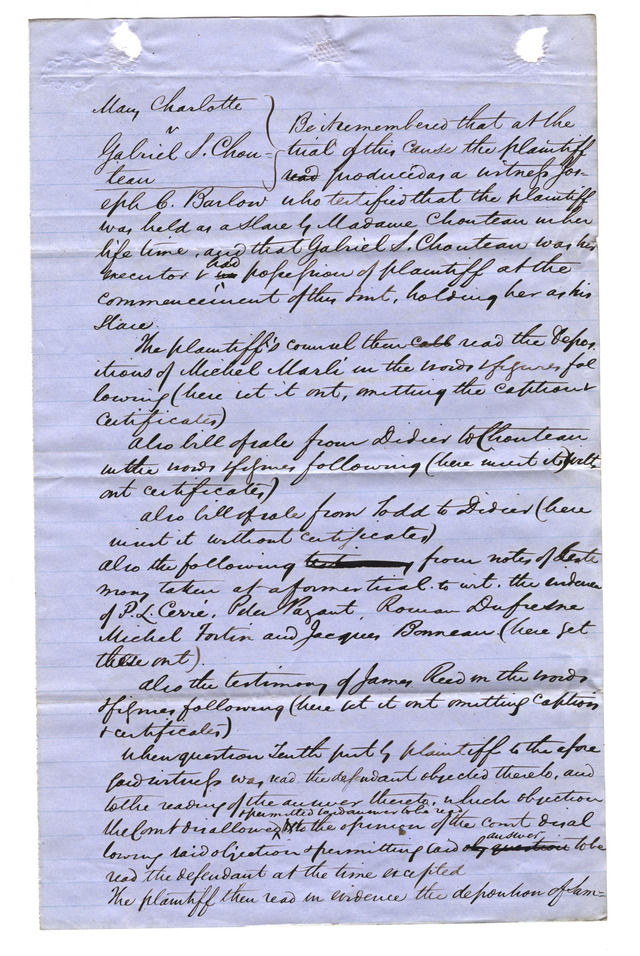 Mary Charlotte
v
Gabriel S. Chou-
teau
Be it remembered that at the
trial of this cause the plaintiff
read produced as a witness Jos-
eph C. Barlow who testified that the plaintiff
was held as a Slave by Madame Chouteau in her
life time, and that Gabriel S. Chouteau was her
executor & had in possession of plaintiff at the
commencement of this suit, holding her as his
Slave.
The plaintiff's counsel then read the Depos-
itions of Michel Marli in the words & figures fol
lowing (here set it out, omitting the caption &
certificates)
also bill of sale from Didier to Chouteau
in the words & figures following (here insert it) with
out certificates)
also bill of sale from Todd to Didier (here
insert it without certificates)
also the following from notes of teste
mony taken at a former trial. to wit. the evidence
of P. L. Cerre, Peter Pazant, Roman Dufresne
Michel Fortin and Jacques Bonneau (here set
these out).
also the testimony of James Reed in the words
& figures following (here set it out omitting caption
& certificates)
when question Tenth put by plaintiff to the afore
said witness was read the defendant objected thereto, and
to the reading of the answer thereto, which objection
& permitted said answer to be read
the Court disallowed, to the opinion of the court disal
lowing said objection & permitting said answer question to be
read the defendant at the time excepted
The plaintiff then read in evidence the deposition of Sam-